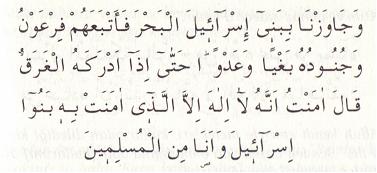 وَجَاوَزْنَا بِبَنٖٓي اِسْرَٓائٖيلَ الْبَحْرَ فَاَتْبَعَهُمْ فِرْعَوْنُ
وَجُنُودُهُ بَغْيًا وَعَدْوًاۜ حَتّٰٓى اِذَٓا اَدْرَكَهُ الْغَرَقُ
قَالَ اٰمَنْتُ اَنَّهُ لَٓا اِلٰهَ اِلَّا الَّذٖٓي اٰمَنَتْ بِهٖ بَنُٓوا
اِسْرَٓائٖيلَ وَاَنَا۬ مِنَ الْمُسْلِمٖينَ